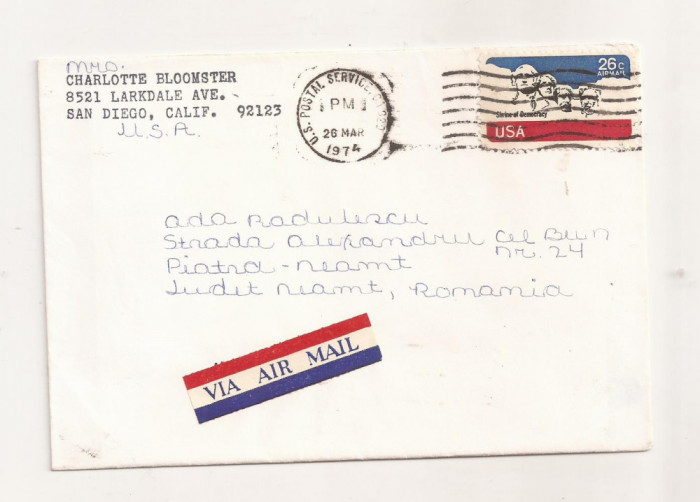 Mrs.
CHARLOTTE BLOOMSTER
8521 LARKDALE AVE.
SAN DIEGO, CALIF. 92123
U.S.A.
U.S. POSTAL SERVICE
PM
26 MAR
1974
26c
AIRMAIL
Shrine of Democracy
USA
Ada Radulescu
Strada Alexandru cel Bun
nr. 24
Piatra-Neamt
Judet Neamt, Romania
VIA AIR MAIL